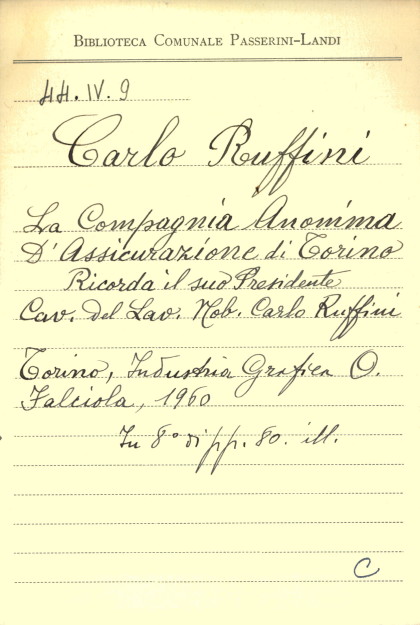 BIBLIOTECA COMUNALE PASSERINI-LANDI
44.IV.9
Carlo Ruffini
La Compagnia Anonima
D'Assicurazione di Torino
Ricorda il suo Presidente
Cav. del Lav. Nob. Carlo Ruffini
Torino, Industria Grafica O.
Falciola, 1960
In 8° di pp. 80. ill.
C